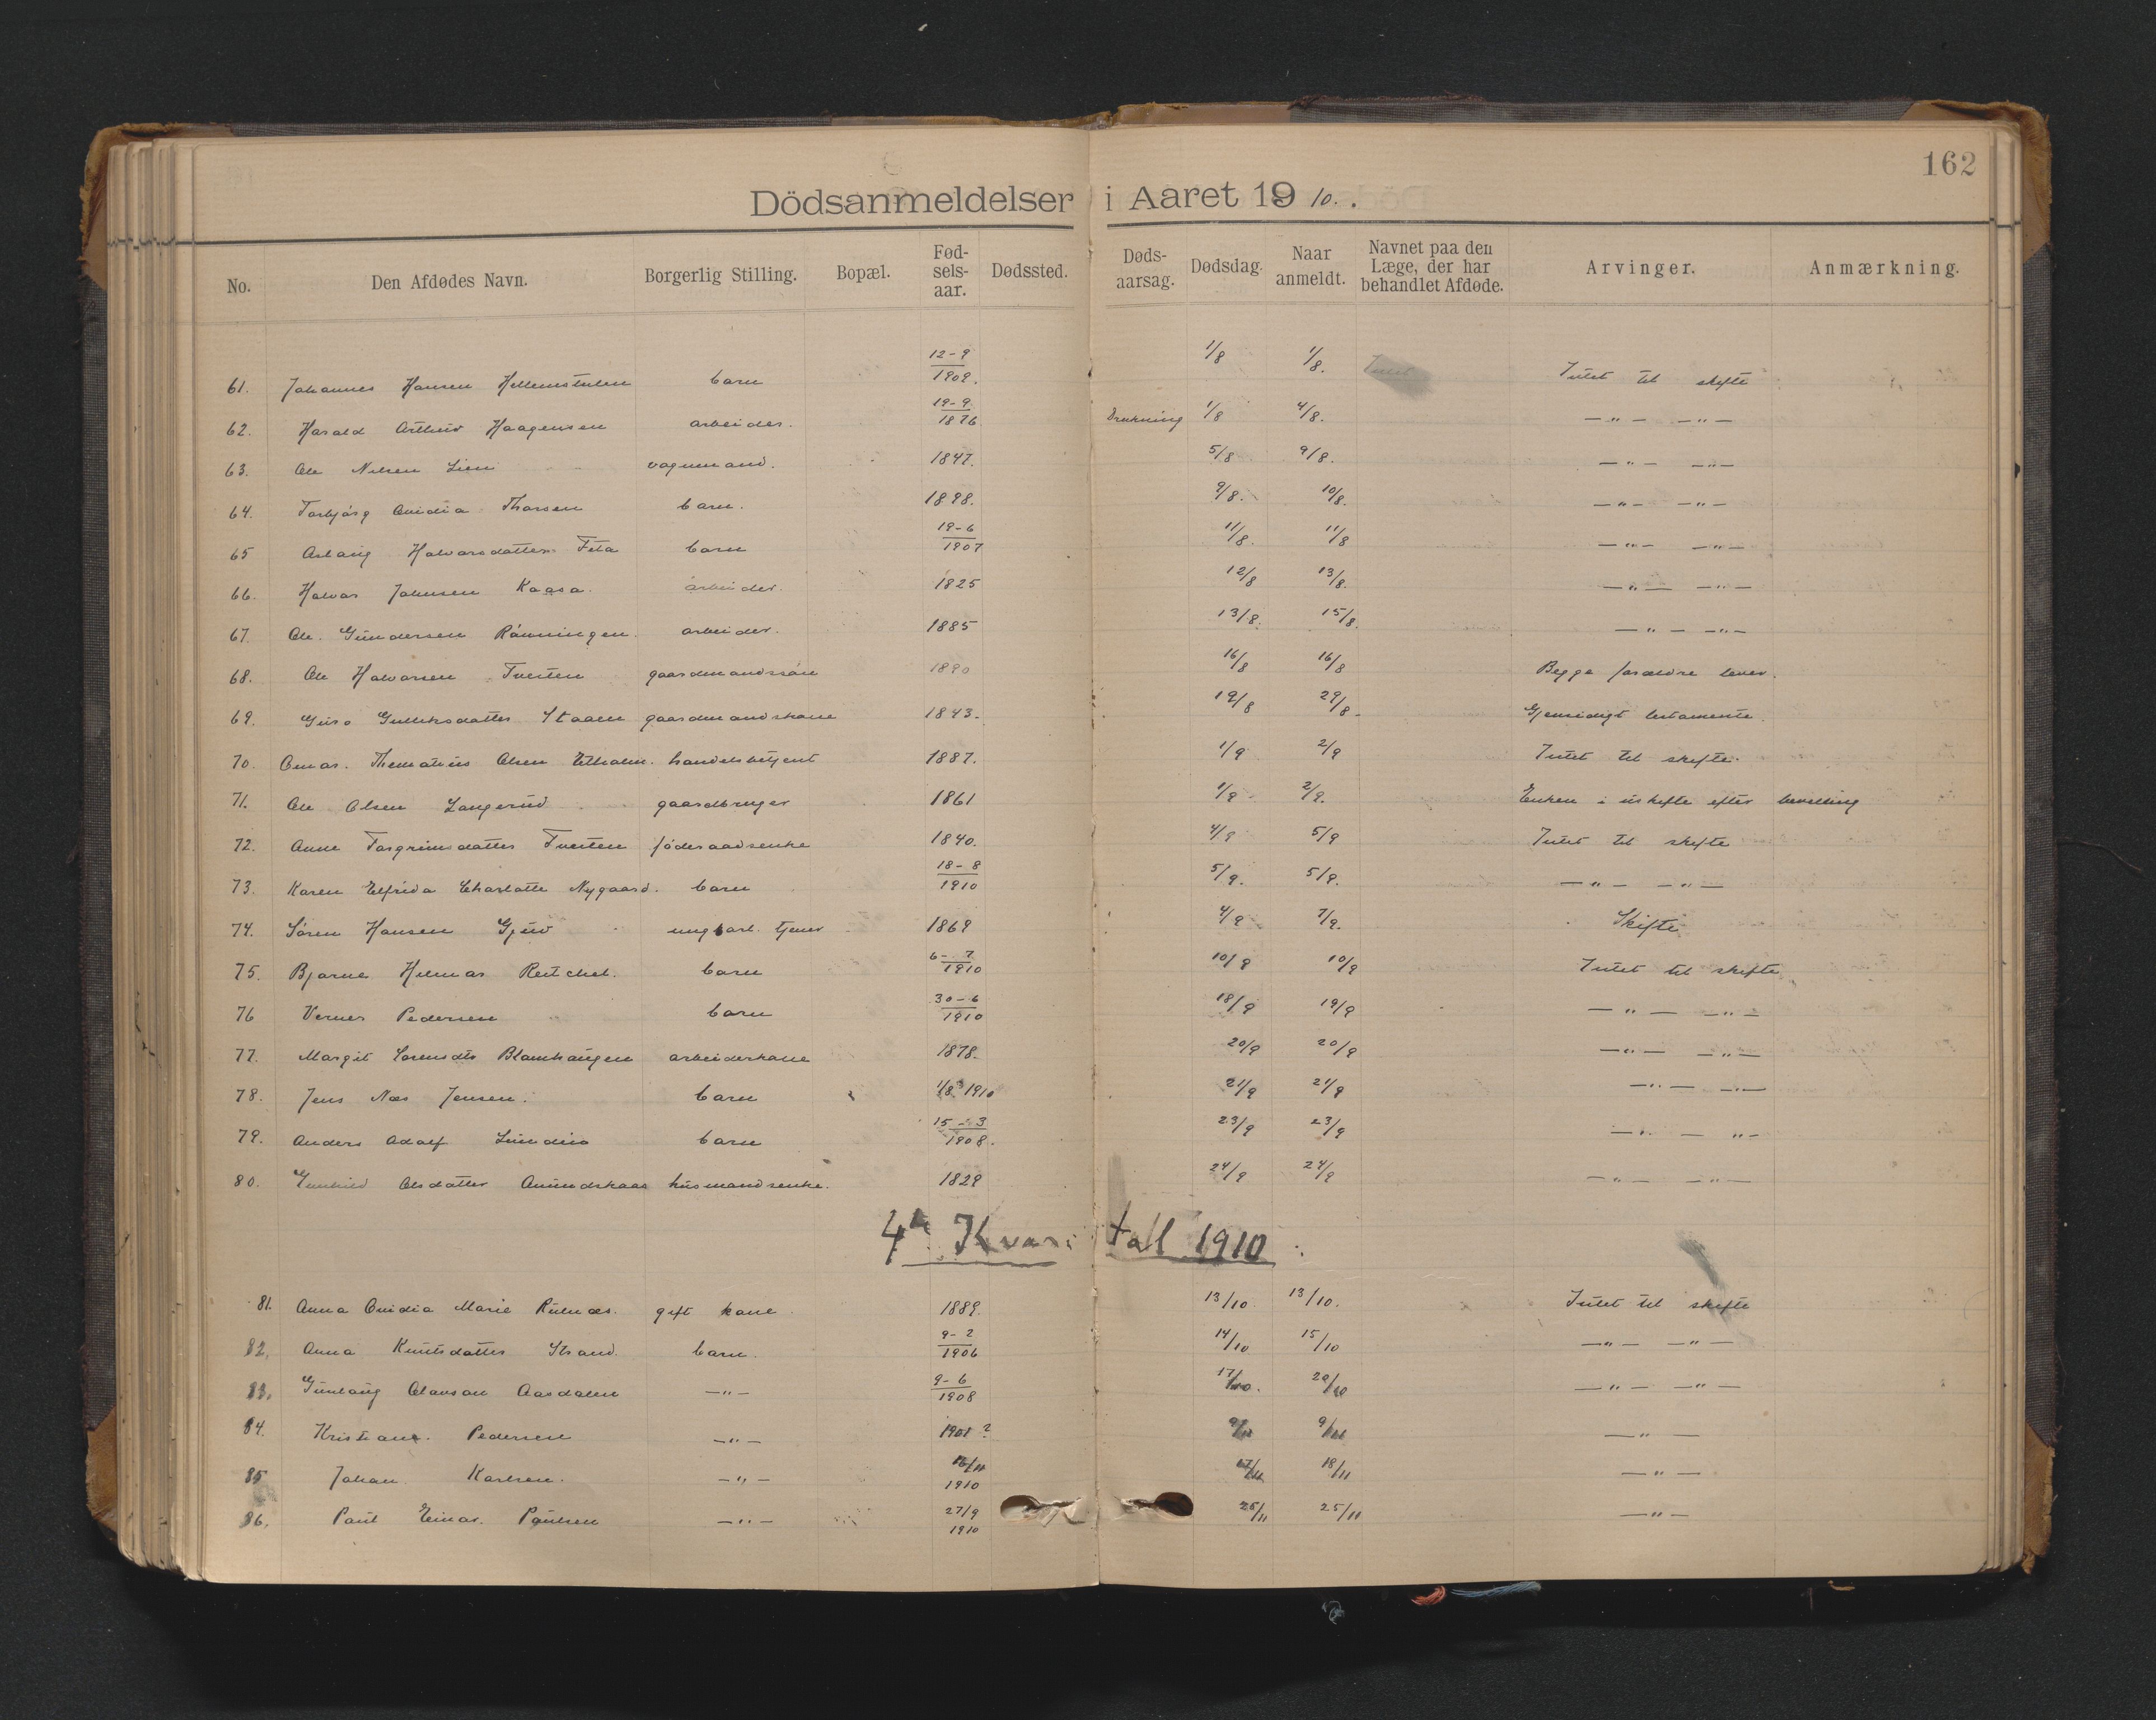 162
Dödsanmeldelser i Aaret 1910.
No. Den Afdødes Navn. Borgerlig Stilling. Bopæl. Fødselsaar. Dødssted. Dødsaarsag. Dødsdag. Naar anmeldt. Navnet paa den Læge, der har behandlet Afdøde. Arvinger. Anmærkning.
61. Johannes Hansen barn 12-9 1909. 1/8 1/8. Intet til skifte
62. Harald Arthur Haagensen arbeider. 19-9. 1876 Drukning 1/8 4/8. —"— —"—
63. Ole Nilsen Lien vognmand. 1847. 5/8 9/8. —"— —"—
64. Torbjörg Ovidia Thorsen barn. 1898. 9/8. 10/8. —"— —"—
65 Aslaug Halvorsdatter barn 19-6 1907 11/8. 11/8 —"— —"—
66. Halvor Johnsen Kaasa. arbeider. 1825 12/8 13/8. —"— —"—
67. Ole Gundersen Rönningen. arbeider. 1885 13/8. 15/8. —"— —"—
68. Ole Halvorsen Tveiten gaardmandssön 1890 16/8 16/8 Begge forældre lever.
69. Guro Gulliksdatter Staaen gaardmandskone 1843. 19/8 29/8. Gjensidigt testamente.
70. Olsen handelsbetjent 1887. 1/9 2/9 Intet til skifte.
71. Ole Olsen Langerud gaardbruger 1861 1/9 2/9. Enken i uskifte efter bevilling
72. Anne Torgrimsdatter Tveiten föderaadsenke 1840. 4/9 5/9 Intet til skifte
73. Karen Elfrida Charlotte Nygaard. barn 18-8 1910 5/9. 5/9. —"— —"—
74. Sören Hansen Gjuv tjener 1869 4/9 7/9. Skifte
75. Bjarne Hilmar barn 6-7 1910 10/9 10/9 Intet til skifte
76 Verner Pedersen barn 30-6 1910 18/9 19/9 —"— —"—
77. Margit arbeiderkone 1878. 20/9 20/9 —"— —"—
78. Jens Næs Jensen. barn 1/8 1910 21/9 21/9 —"— —"—
79. Anders Adolf barn 15-3 1908. 23/9 23/9 —"— "—
80. Gunhild Olsdatter husmandsenke. 1829 24/9 24/9 —"— —"—
4de Kvartal 1910
81. Anna Ovidia Marie gift kone 1889. 13/10 13/10. Intet til skifte
82. Anna Knutsdatter Strand. barn. 9-2 1906 14/10 15/10 —"— —"—
83. Gunlaug Olavson Aasdalen —"— 9-6 1908 17/10. 20/10 —"— —"—
84. Kristiane Pedersen —"— ? 9/11 9/11 —"—
85 Johan Karlsen. —"— 1910 17/11 18/11 —"—
86. Paul Einar. Paulsen —"— 27/9 1910 25/11 25/11 —"—